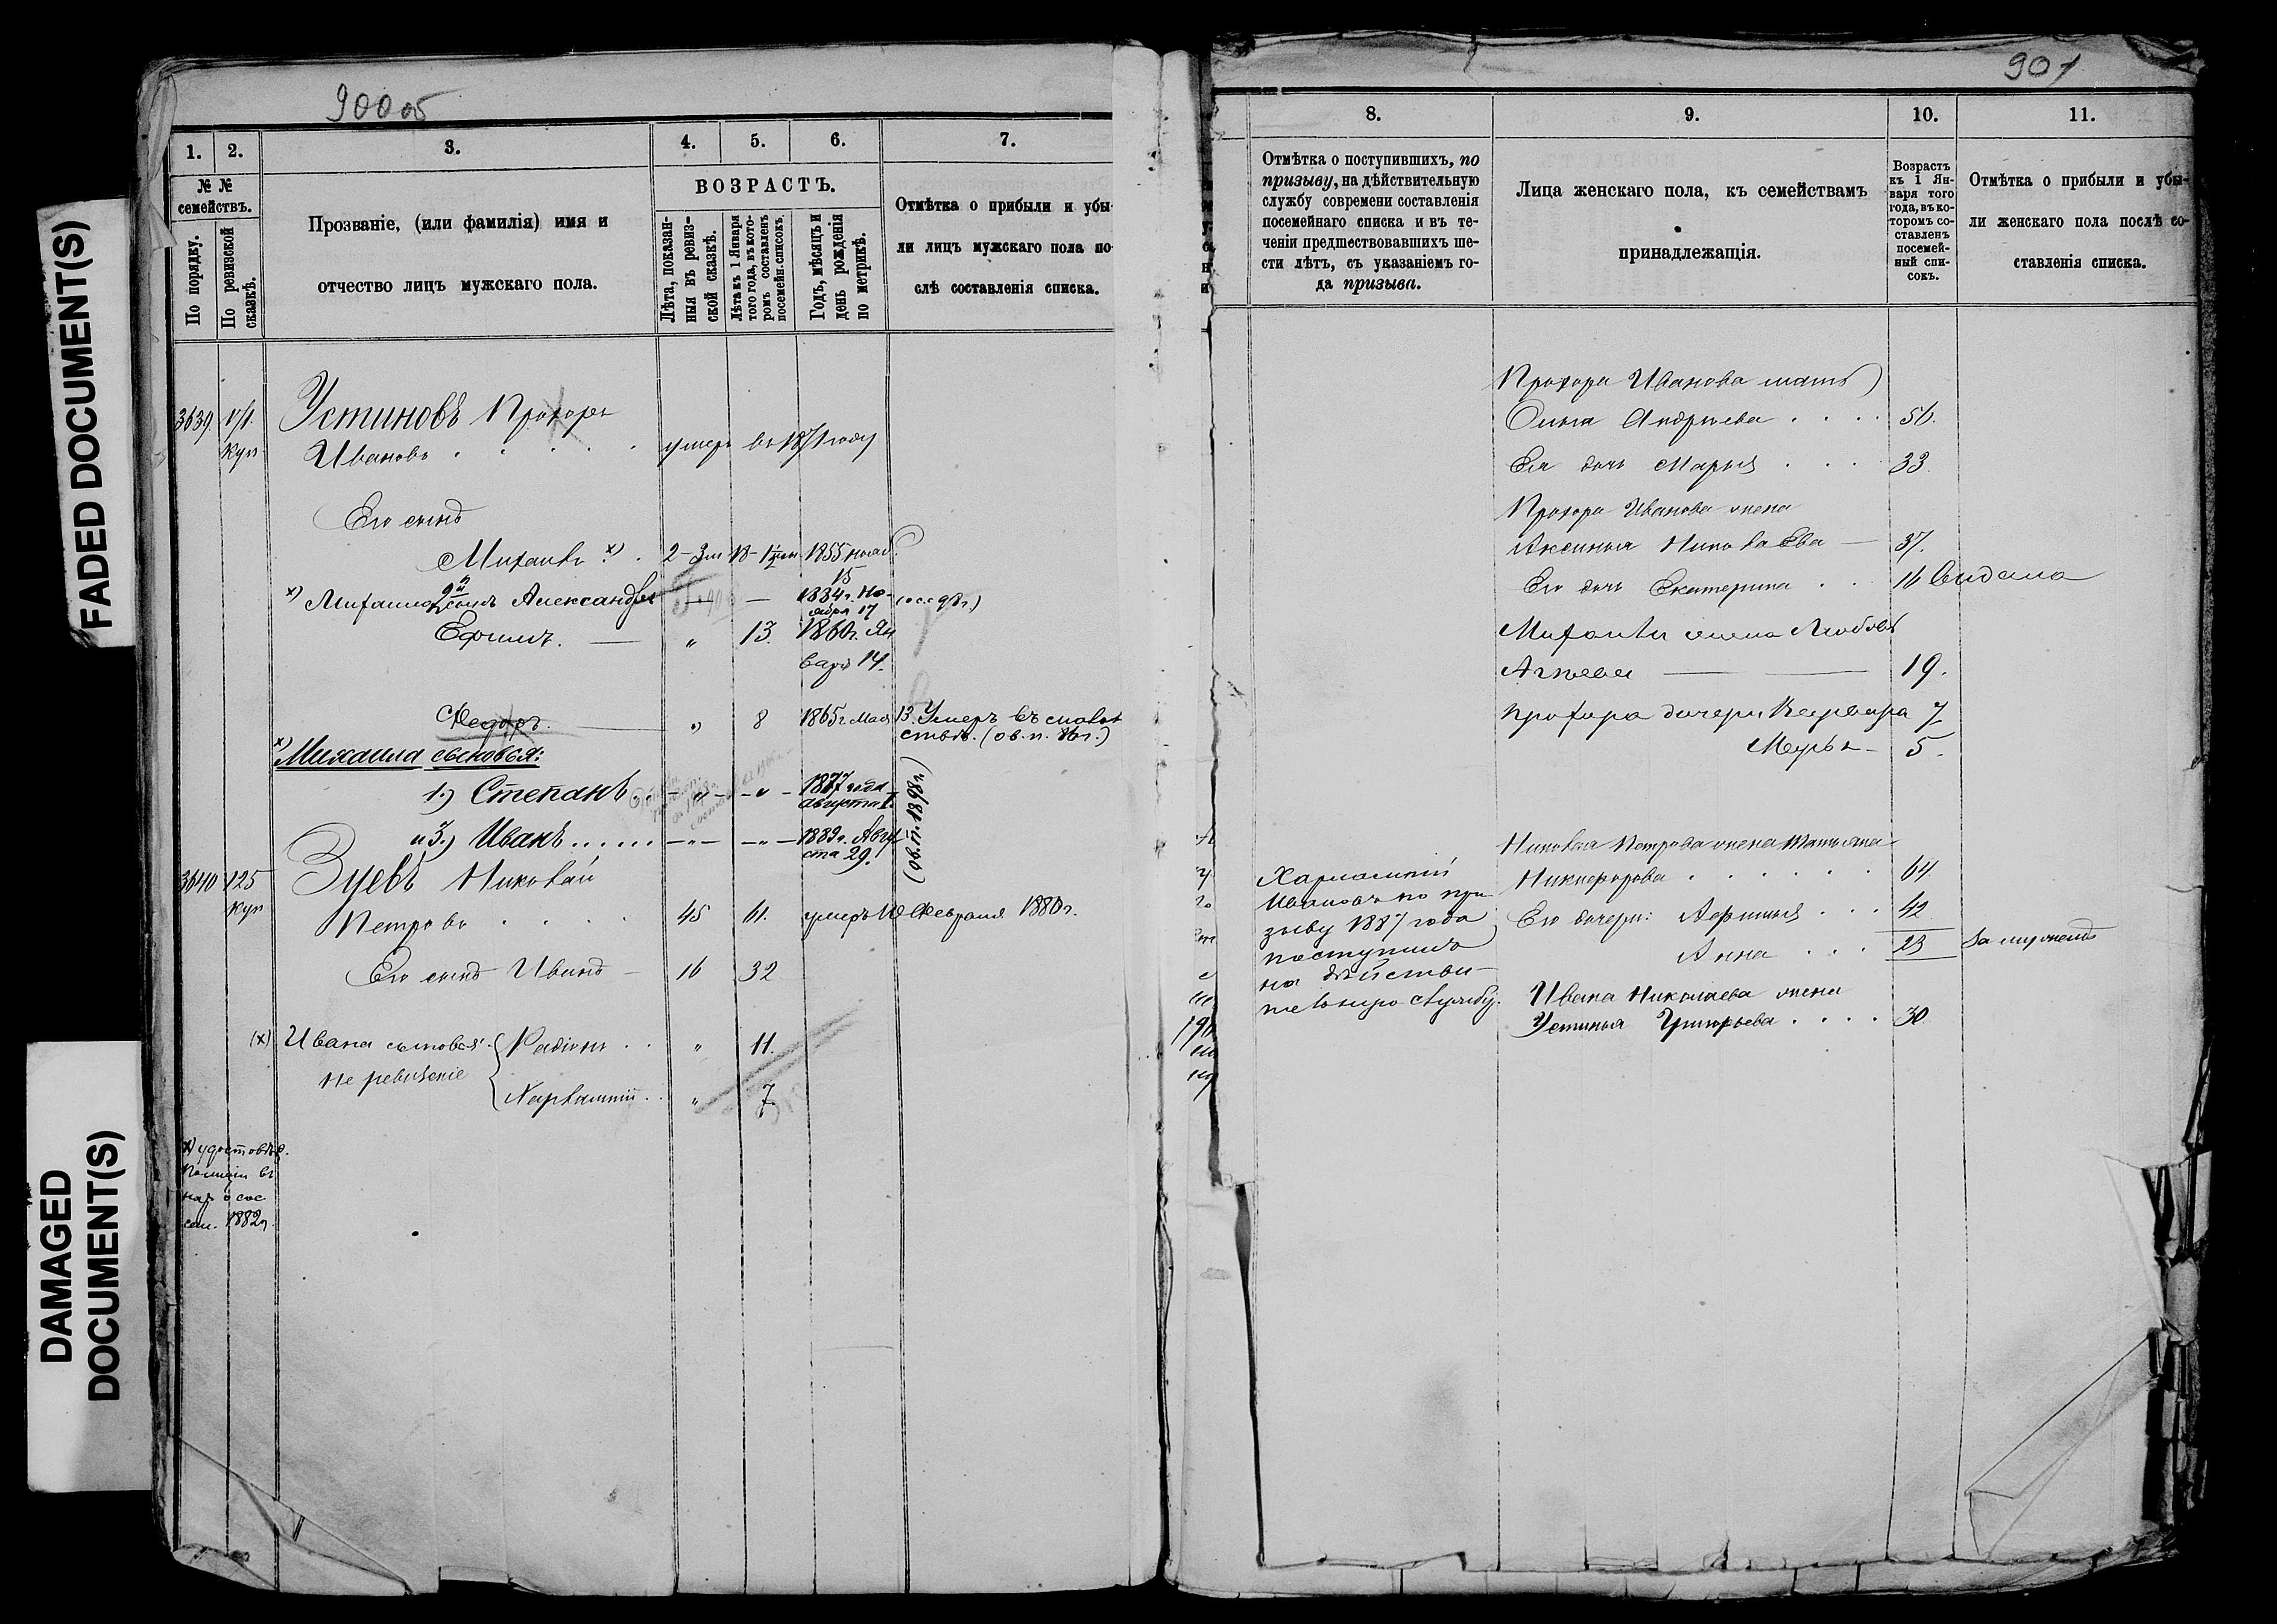 FADED DOCUMENT(S)
DAMAGED
DOCUMENT(S)
900 об
1. 2. 3. 4. 5. 6. 7.
№ №
семействъ.
По порядку.
По ревизской
сказкѣ.
Прозваніе, (или фамилія) имя и
отчество лицъ мужскаго пола.
ВОЗРАСТЪ.
Лѣта, показан-
ныя въ ревиз-
ской сказкѣ.
Лѣта къ 1 Января
того года, въ кото-
ромъ составленъ
посемейн. списокъ.
Годъ, мѣсяцъ и
день рожденія
по метрикѣ.
Отмѣтка о прибыли и убы-
ли лицъ мужскаго пола по-
слѣ составленія списка.
3639
Устиновъ Прохоръ
куп
Ивановъ умеръ въ 1871 году
Его сынъ
Михаилъ х) 2 - 3 м 18 - 1855 нояб.
15
х) Михаила сынъ Александръ 1884 г. Но-
ября 17
Ефимъ. „ 13 1860 г. Ян
варя 14.
Ѳедоръ. „ 8 1865 г. Мая 13. Умеръ въ
(об. п.
х) Михаила сыновья:
1.) Степанъ 1877 года
августа 1.
и 3.) Иванъ...... 1889 г. Авгу
ста 29.
(об. п. 1898 г.)
3640 125 Зуевъ Николай
куп
Петровъ 45 61. умеръ Февраля 1880 г.
Его сынъ Иванъ 16 32
(х) Ивана сыновья: Радіонъ „ 11.
Не ревизскіе
Харлампій „ 7
х) удостовѣр.
сем. 1882 г.
901
8. 9. 10. 11.
Отмѣтка о поступившихъ, по
призыву, на дѣйствительную
службу современи составленія
посемейнаго списка и въ те-
ченіи предшествовавшихъ ше-
сти лѣтъ, съ указаніемъ го-
да призыва.
Лица женскаго пола, къ семействамъ
принадлежащія.
Возрастъ
къ 1 Ян-
варя того
года, въ ко-
торомъ со-
ставленъ
посемей-
ный спи-
сокъ.
Отмѣтка о прибыли и убы-
ли женскаго пола послѣ со-
ставленія списка.
Прохора Иванова мать
Ольга Андреева 56.
Ея дочь Марья 33
Прохора Иванова жена
Аксинья Николаева 37.
Его дочь Екатерина 16 выдана
Михаила жена Любовь
19.
Прохора дочери Варвара 7
Марья 5.
Николая Петрова жена Татьяна
Никифорова 64
Его дочери: Афимья 42
Анна 23 За мужемъ
Ивана Николаева жена
Устинья Григорьева 30
Харлампій
Ивановъ по при
зыву 1887 года
поступилъ
на дѣйстви-
тельную службу.